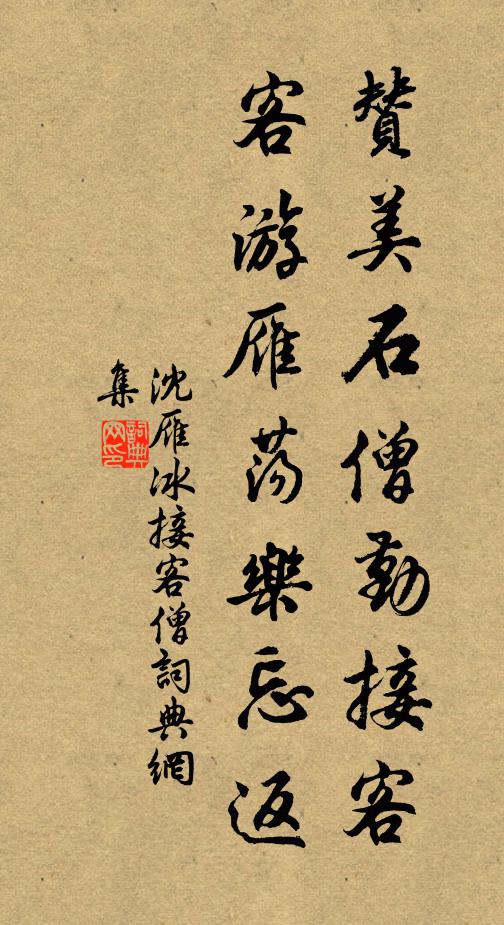 贊美石僧勤接客
客游雁荡樂忘返
沈雁冰接客僧詞典網
集
詞典
网印